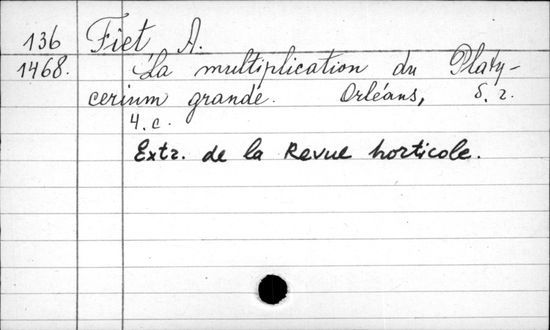 136 Fiet A.
1468. La multiplication du Platy-
cerium grande. Orléans, S. r.
4. c.
Extr. de la Revue horticole.